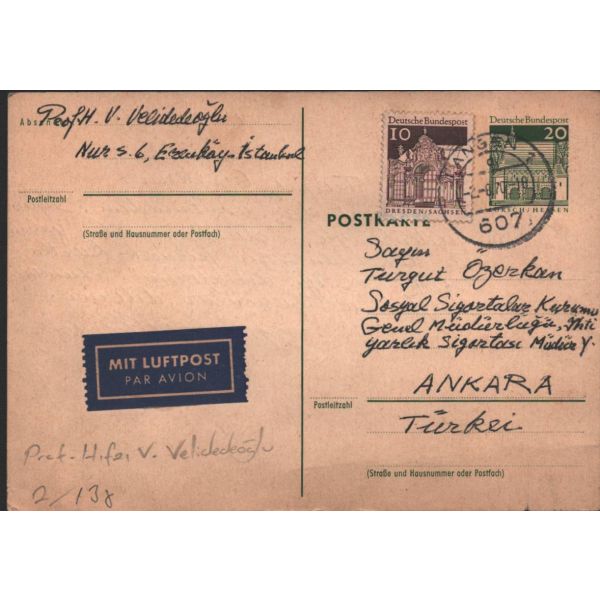 Absender:
Prof. H. V. Velidedeoğlu
Nur s. 6, Erenköy-İstanbul
Postleitzahl
(Straße und Hausnummer oder Postfach)
MIT LUFTPOST
PAR AVION
Prof. Hıfzı V. Velidedeoğlu
2/138
Deutsche Bundespost
10
DRESDEN/SACHSEN
Deutsche Bundespost
20
LORSCH/HESSEN
LANGEN 1
607
POSTKARTE
Sayın
Turgut Özerkan
Sosyal Sigortalar Kurumu
Genel Müdürlüğü, İhti
yarlık Sigortası Müdür Y.
ANKARA
Postleitzahl
Türkei
(Straße und Hausnummer oder Postfach)